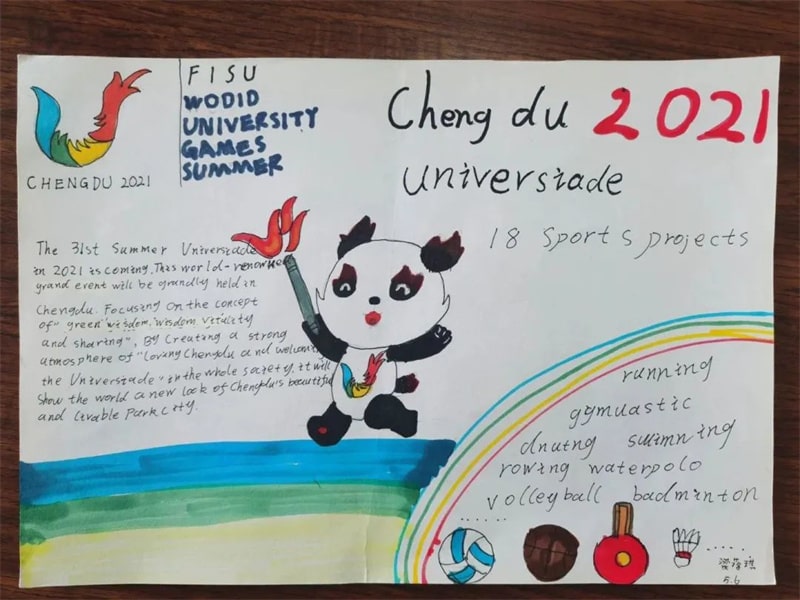 FISU
WODID
UNIVERSITY
GAMES
SUMMER
CHENGDU 2021
Cheng du 2021
universiade
18 Sports projects
The 31st Summer Universiade
in 2021 is coming. This world-renowned
grand event will be grandly held in
Chengdu. Focusing on the concept
of "green wisdom, wisdom, vitulity
and sharing", By Creating a strong
atmosphere of "Loving Chengdu and welcoming
the Universiade" in the whole society, it will
Show the world a new look of Chengdu's beautiful
and Livable Park City.
running
gymuastic
dnuing suimning
rowing waterpolo
volleyball badminton
5.6